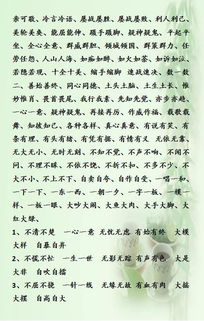 亲可敬、冷言冷语、屡战屡胜、屡战屡胜、利人利己、
美轮美奂、能屈能伸、蹑手蹑脚、疑神疑鬼、平起平
坐、全心全意、群威群胆、倾城倾国、群策群力、任
劳任怨、人山人海、如痴如醉、如火如荼、如诉如泣、
若隐若现、十全十美、缩手缩脚 速战速决、载一数
二、善始善终、同心同德、土头土脑、土生土长、惟
妙惟肖、畏首畏尾、我行我素、先知先觉、亦步亦趋、
一心一意、疑神疑鬼、再接再厉、作威作福、载歌载
舞、知彼知己、各种各样、真心真意、有说有笑、有
条有理、有头有绪、有凭有据、有情有义 无依无靠、
无大无小、无时无刻、不知不觉、不声不响、不闻不
问、不理不睬、不依不饶、不折不扣、不多不少、不
大不小、不上不下、自卖自夸、自作自受、一唱一和、
一下一下、一东一西、一朝一夕、一字一板、一模一
样、一板一眼、大吵大闹、大鱼大肉、大手大脚、大
红大绿、
1、不清不楚 一心一意 无忧无虑 有始有终 大模
大样 自暴自弃
2、不慌不忙 一生一世 无影无踪 有声有色 大是
大非 自吹自擂
3、不屈不挠 一针一线 无缘无故 有血有肉 大摇
大摆 自高自大